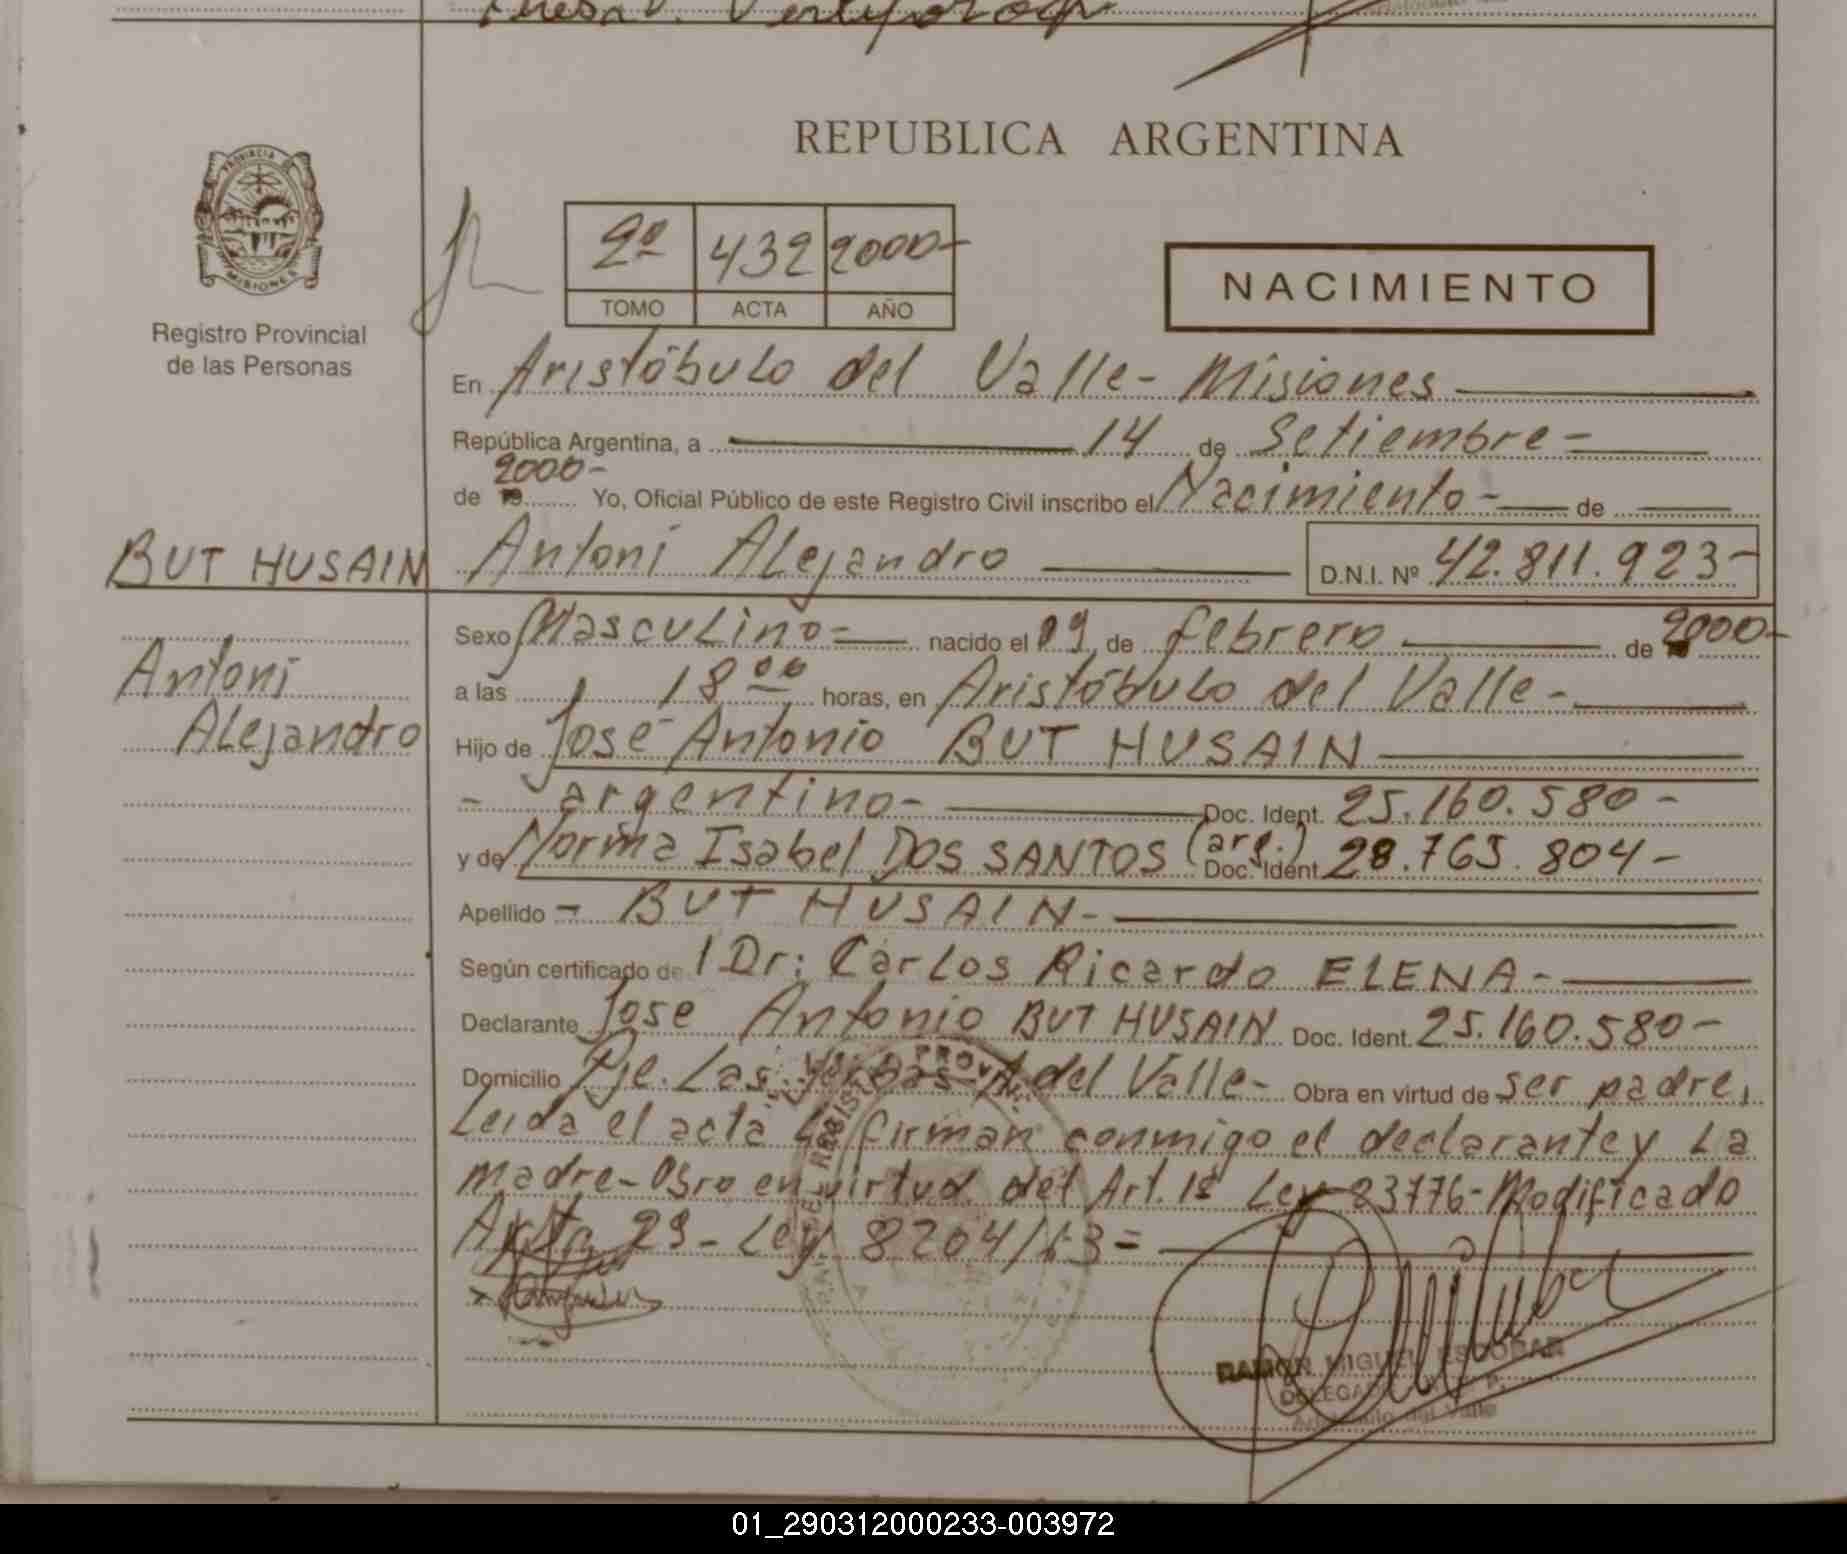 REPUBLICA ARGENTINA
PROVINCIA
MISIONES
Registro Provincial
de las Personas
2º 432 2000-
TOMO ACTA AÑO
NACIMIENTO
En Aristóbulo del Valle - Misiones
República Argentina, a 14 de Setiembre =
2000-
de 19 Yo, Oficial Público de este Registro Civil inscribo el Nacimiento - de
BUT HUSAIN Antoni Alejandro D.N.I. Nº 42.811.923-
Sexo Masculino = nacido el 09 de febrero de 2000-
Antoni
a las 18 00 horas, en Aristóbulo del Valle -
Alejandro
Hijo de José Antonio BUT HUSAIN
- argentino - Doc. Ident. 25.160.580 -
y de Norma Isabel DOS SANTOS (arg.) Doc. Ident. 28.765.804 -
Apellido - BUT HUSAIN -
Según certificado de l Dr: Carlos Ricardo ELENA -
Declarante Jose Antonio BUT HUSAIN Doc. Ident. 25.160.580 -
Domicilio Pje. Las A del Valle - Obra en virtud de ser padre,
Leida el acta La firman conmigo el declarante y La
madre - Obro en virtud del Art. 1º Ley 23776 - Modificado
29 - Ley 8204/63 =
RAMON MIGUEL ESCOBAR
DELEGADO
del Valle
01_290312000233-003972